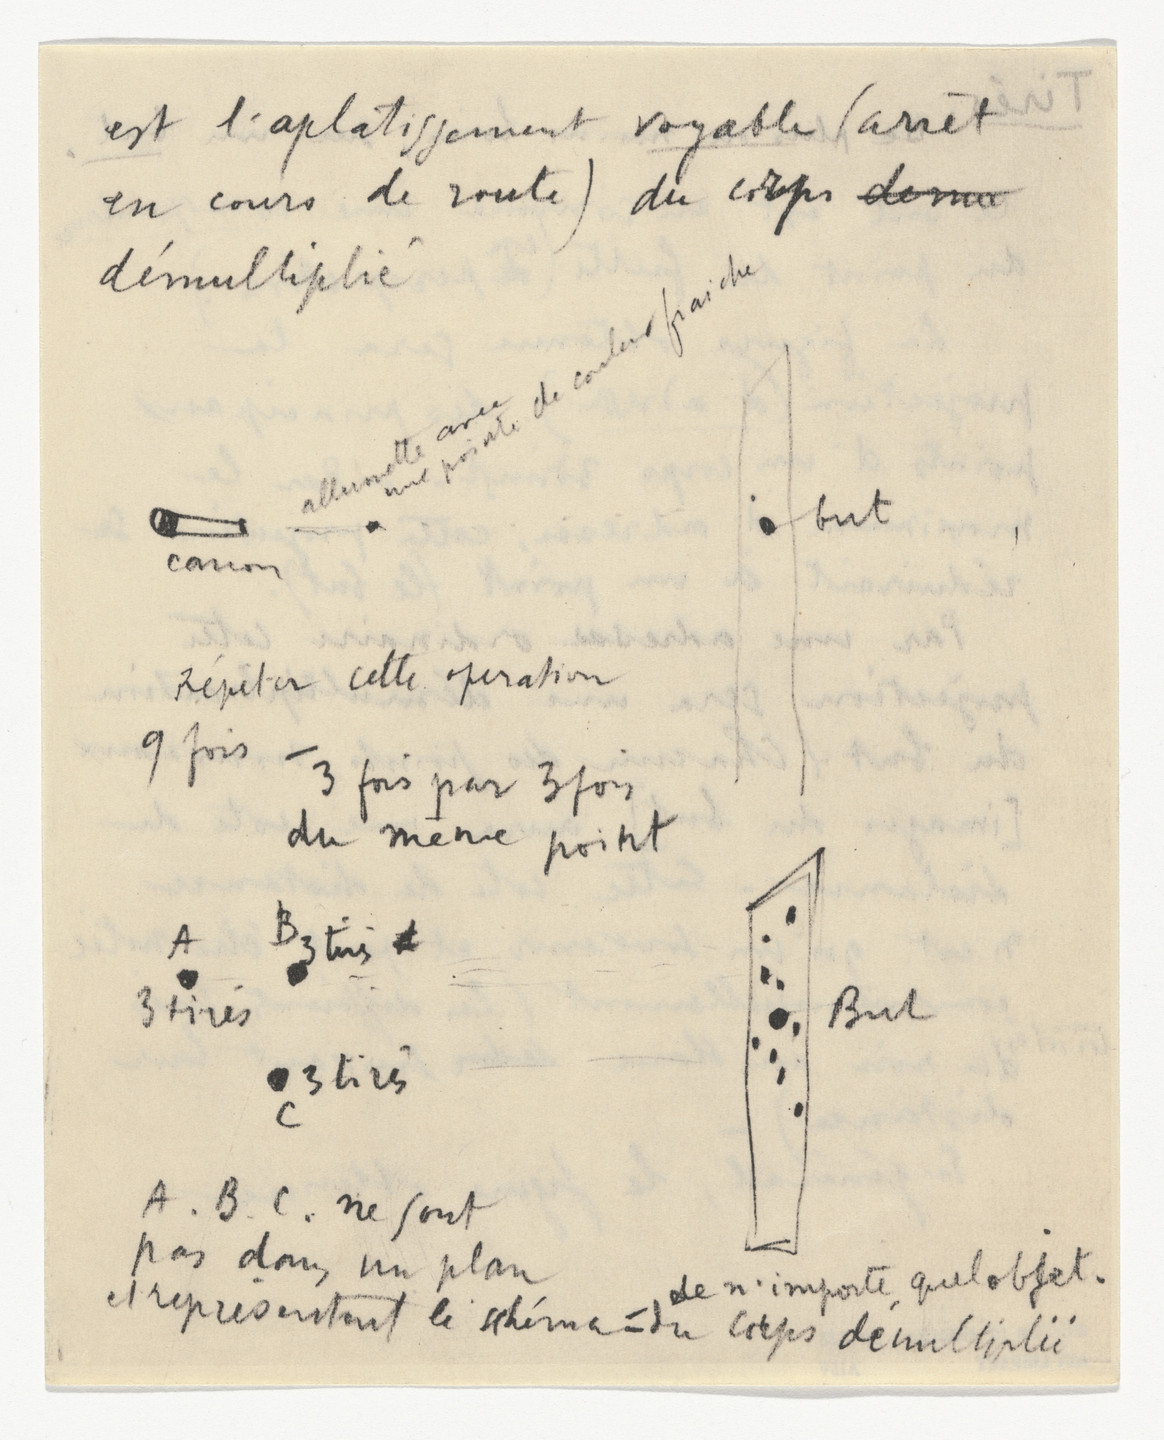 est l'aplatissement voyable (arrêt
en cours de route) du corps demu
démultiplié
allumette avec
une pointe de couleur fraiche
but
canon
Répéter cette operation
9 fois –
3 fois par 3 fois
du même point
A
B
3 tirés
3 tirés
But
3 tirés
C
A. B. C. ne sont
pas dans un plan
de n'importe quel objet.
et représentent le schéma du corps démultiplié